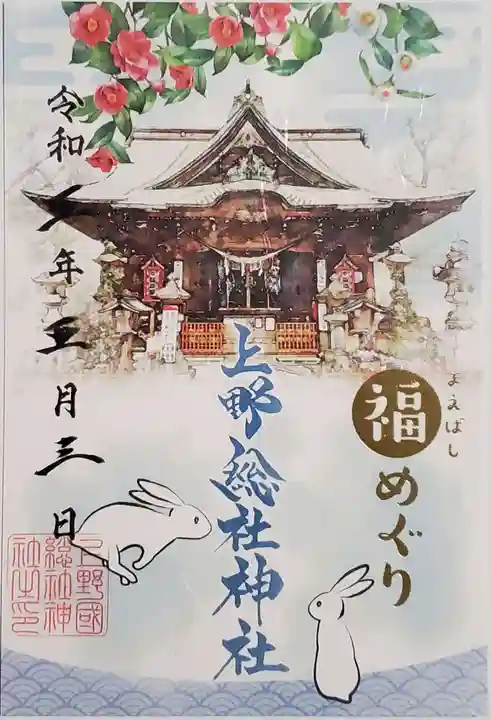 まえばし
福めぐり
上野総社神社
令和六年五月三日
上野國
総社神
社之印